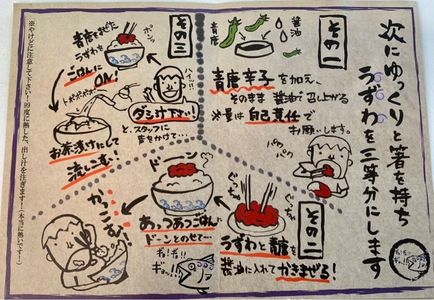 次にゆっくりと箸を持ち
うずわを三等分にします
その一
醤油
青唐
青唐辛子を加え、
そのまま醤油で召し上がる
※量は自己責任で
お願いします。
その二
ぐっちゃ
ぐっちゃ
うずわと青唐を
醤油に入れてかきまぜる!
ドーン
あっつあつごはんに
ドーンとのせて…
ギョ!ギョ!
ギョッ!
かっこむ!
その三
ポン
青唐をまぜた
うずわを
ごはんに
ON!
ハイッ!!
トポポポポ…
ダシ汁下さい!
と、スタッフに
声をかけて…
お茶漬けにして
流しこむ!
※やけどに注意して下さい!90度に熱した、出し汁を注ぎます!(本当に熱いです!)